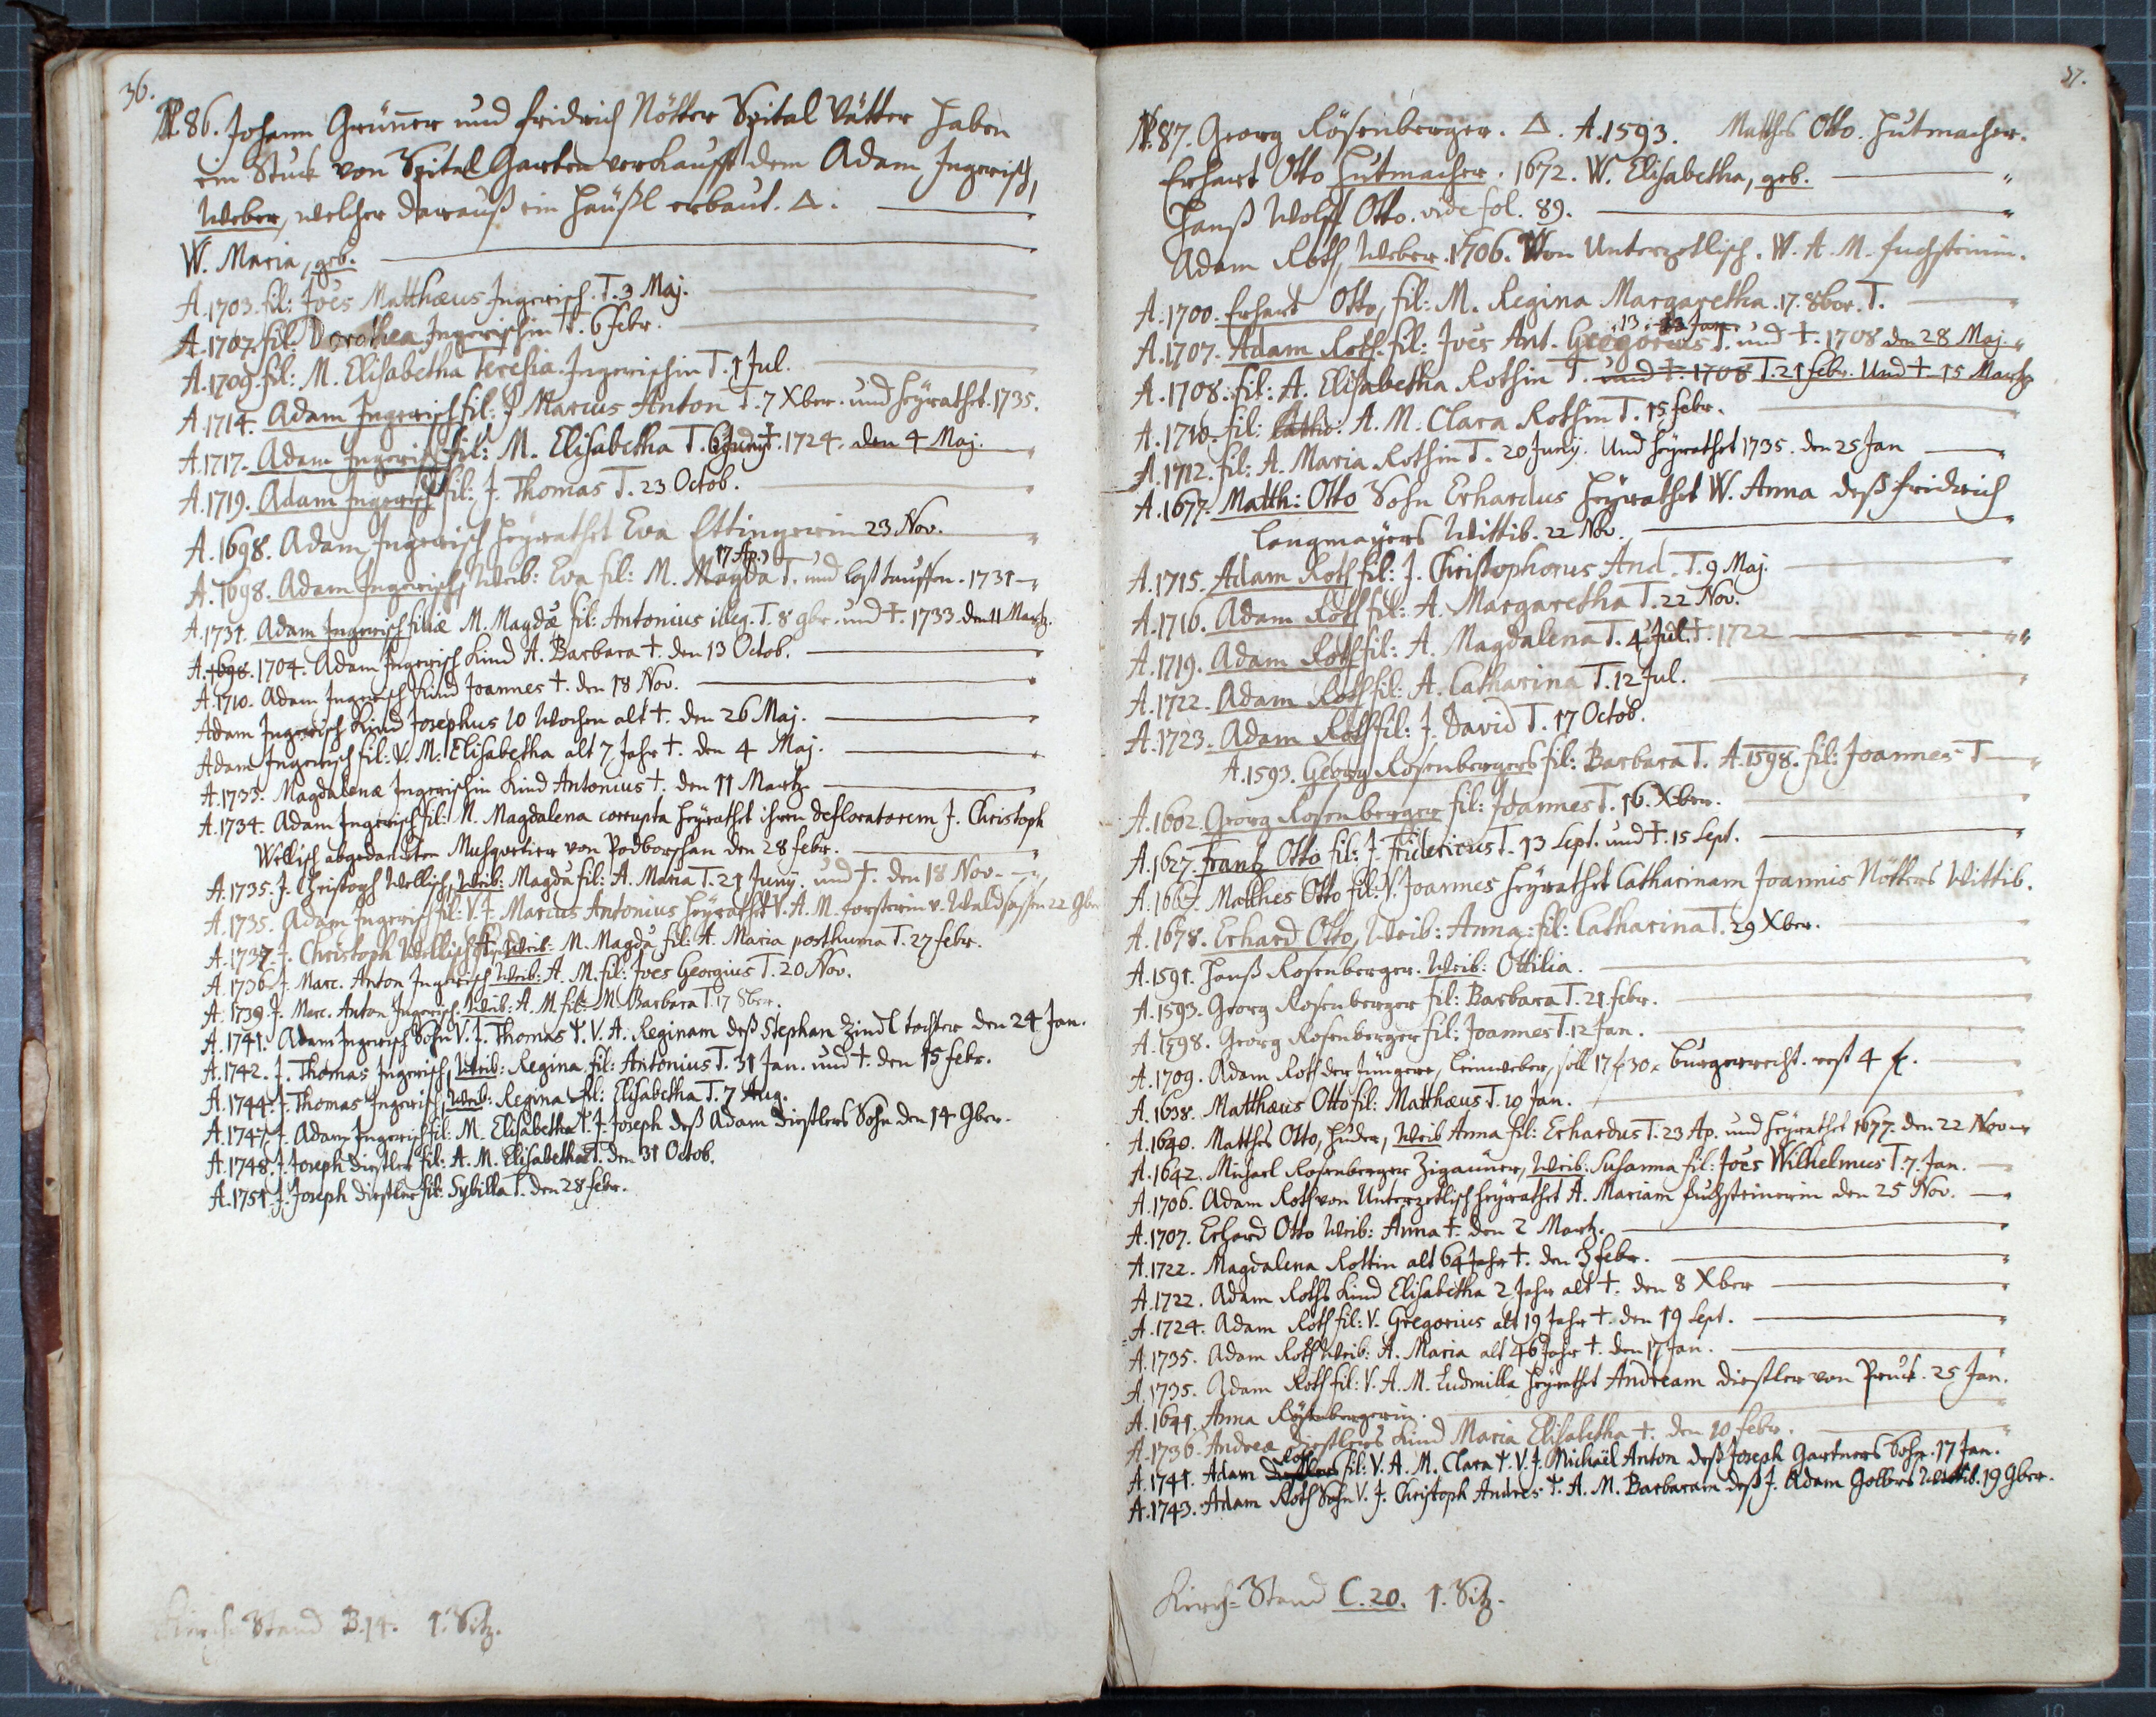 36.
N. 86. Johann Grüner und Fridrich Nötter Spital Vätter haben
ein Stuck von Spital Garten verkaufft dem Adam Ingerisch,
Weber, welcher darauß ein Häußl erbaut. Δ.
W. Maria, geb.
A. 1703. fil: Joës Matthæus Ingerisch. T. 3 Maj.
A. 1707. fil: Dorothea Ingerischin T. 6 Febr.
A. 1709. fil: M. Elisabetha Teresia Ingerischin T. 1 Jul.
A. 1714. Adam Ingerisch fil: J. Marcus Anton T. 7 Xber. und heyrathet 1735.
A. 1717. Adam Ingerisch fil: M. Elisabetha T. 6 Juny †. 1724. den 4 Maj.
A. 1719. Adam Ingerisch fil: J. Thomas T. 23 Octob.
A. 1698. Adam Ingerisch heyrathet Eva Ettingerin 23 Nov.
A. 1698. Adam Ingerisch, Weib: Eva fil: M. Magda T. 17 Ap. und laßt tauffen. 1731
A. 1731. Adam Ingerisch filiæ M. Magdæ fil: Antonius illeg. T. 8 9br. und †. 1733. den 11 Martz.
A. 1698. 1704. Adam Ingerisch Kind A. Barbara †. den 13 Octob.
A. 1710. Adam Ingerisch Kind Joannes †. den 18 Nov.
Adam Ingerisch Kind Josephus 10 Wochen alt †. den 26 Maj.
Adam Ingerisch fil: V. M. Elisabetha alt 7 Jahr †. den 4 Maj.
A. 1733. Magdalenæ Ingerischin Kind Antonius †. den 11 Martz
A. 1734. Adam Ingerisch fil: M. Magdalena corrupta heyrathet ihren defloratorem J. Christoph
Wellisch abgedanckten Musquetier von Podborschan den 28 Febr.
A. 1735. J. Christoph Wellisch, Weib: Magda fil: A. Maria T. 21 Juny. und †. den 18 Nov.
A. 1735. Adam Ingerisch fil: V. J. Marcus Antonius heyrathet V. A. M. Forsterin v. Waldsassen 22 9br
A. 1737. J. Christoph Wellisch †. Weib: M. Magda fil: A. Maria posthuma T. 27 Febr.
A. 1736. J. Marc. Anton Ingerisch Weib: A. M. fil: Joës Georgius T. 20 Nov.
A. 1739. J. Marc. Anton Ingerisch, Weib: A. M. fil: M. Barbara T. 17 8ber.
A. 1741. Adam Ingerisch Sohn V. J. Thomas ⚭. V. A. Reginam deß Stephan Zindl tochter den 24 Jan.
A. 1742. J. Thomas Ingerisch, Weib: Regina fil: Antonius T. 31 Jan. und †. den 15 Febr.
A. 1744. J. Thomas Ingerisch, Weib: Regina fil: Elisabetha T. 7 Aug.
A. 1747. J. Adam Ingerisch fil: M. Elisabetha ⚭. J. Joseph deß Adam Diestlers Sohn den 14 9ber.
A. 1748. J. Joseph Diestler fil: A. M. Elisabetha T. den 31 Octob.
A. 1751. J. Joseph Diestler fil: Sybilla T. den 28 Febr.
Kirch-Stand B. 14. 1. Sitz.
37.
N. 87. Georg Rösenberger. Δ. A. 1593. Matthes Otto. Hutmacher.
Erhart Otto Hutmacher. 1672. W. Elisabetha, geb.
Hanß Wolff Otto. vide fol. 89.
Adam Roth, Weber. 1706. Von Unterzetlisch. W. A. M. Fuchsteinin.
A. 1700. Erhart Otto, fil: M. Regina Margaretha. 17. 8ber. T.
A. 1707. Adam Roth. fil: Joës Ant. Gregorius T. 13 Jan. und †. 1708 den 28 Maj.
A. 1708. fil: A. Elisabetha Rothin T. und †. 1708 T. 21 Febr. Und † 15 Martz
A. 1710. fil: Catho. A. M. Clara Rothin T. 15 Febr.
A. 1712. fil: A. Maria Rothin T. 20 Juny. Und heyrathet 1735. den 25 Jan
A. 1677. Matth: Otto Sohn Erhardus heyrathet W. Anna deß Fridrich
Langmayers Wittib. 22 Nov.
A. 1715. Adam Roth fil: J. Christophorus And. T. 9 Maj.
A. 1716. Adam Roth fil: A. Margaretha T. 22 Nov.
A. 1719. Adam Roth fil: A. Magdalena T. 4 Jul. †. 1722
A. 1722. Adam Roth fil: A. Catharina T. 12 Jul.
A. 1723. Adam Roth fil: J. David T. 17 Octob.
A. 1593. Georg Rosenbergers fil: Barbara T. A. 1598. fil: Joannes T
A. 1602. Georg Rosenberger fil: Joannes T. 16. Xber.
A. 1627. Frantz Otto fil: J. Fridericus T. 13 Sept. und †. 15 Sept.
A. 1667. Matthes Otto fil: V. Joannes heyrathet Catharinam Joannis Nötters Wittib.
A. 1678. Erhard Otto, Weib: Anna: fil: Catharina T. 29 Xber.
A. 1591. Hanß Rosenberger. Weib: Ottilia.
A. 1593. Georg Rosenberger fil: Barbara T. 21 Febr.
A. 1598. Georg Rosenberger fil: Joannes T. 12 Jan.
A. 1709. Adam Roth der Jüngere, Leinweber, soll 17 f 30 x Burgerrecht. rest 4 f.
A. 1638. Matthæus Otto fil: Matthæus T. 10 Jan.
A. 1640. Matthes Otto, Huder, Weib Anna fil: Erhardus T. 23 Ap. und heyrathet 1677. den 22 Nov
A. 1642. Michael Rosenberger Zigauner, Weib: Susanna fil: Joës Wilhelmus T. 7. Jan.
A. 1706. Adam Roth von Unterzetlisch heyrathet A. Mariam Fuchsteinerin den 25 Nov.
A. 1707. Erhard Otto Weib: Anna †. den 2 Martz.
A. 1722. Magdalena Rottin alt 64 Jahr †. den 3 Febr.
A. 1722. Adam Roths Kind Elisabetha 2 Jahr alt †. den 8 Xber
A. 1724. Adam Roth fil: V. Gregorius alt 19 Jahr †. den 19 Sept.
A. 1735. Adam Roth Weib: A. Maria alt 46 Jahr †. den 17 Jan.
A. 1735. Adam Roth fil: V. A. M. Ludmilla heyrathet Andream Diestler von Pruck. 25 Jan.
A. 1641. Anna Rösenbergerin.
A. 1736. Andreæ Diestlers Kind Maria Elisabetha †. den 10 Febr.
A. 1741. Adam Diestlers Roth fil: V. A. M. Clara ⚭. V. J. Michaël Anton deß Joseph Gartners Sohn. 17 Jan.
A. 1743. Adam Roth Sohn V. J. Christoph Andres ⚭. A. M. Barbaram deß J. Adam Wittib. 19 9ber.
Kirch-Stand C. 20. 1. Sitz.